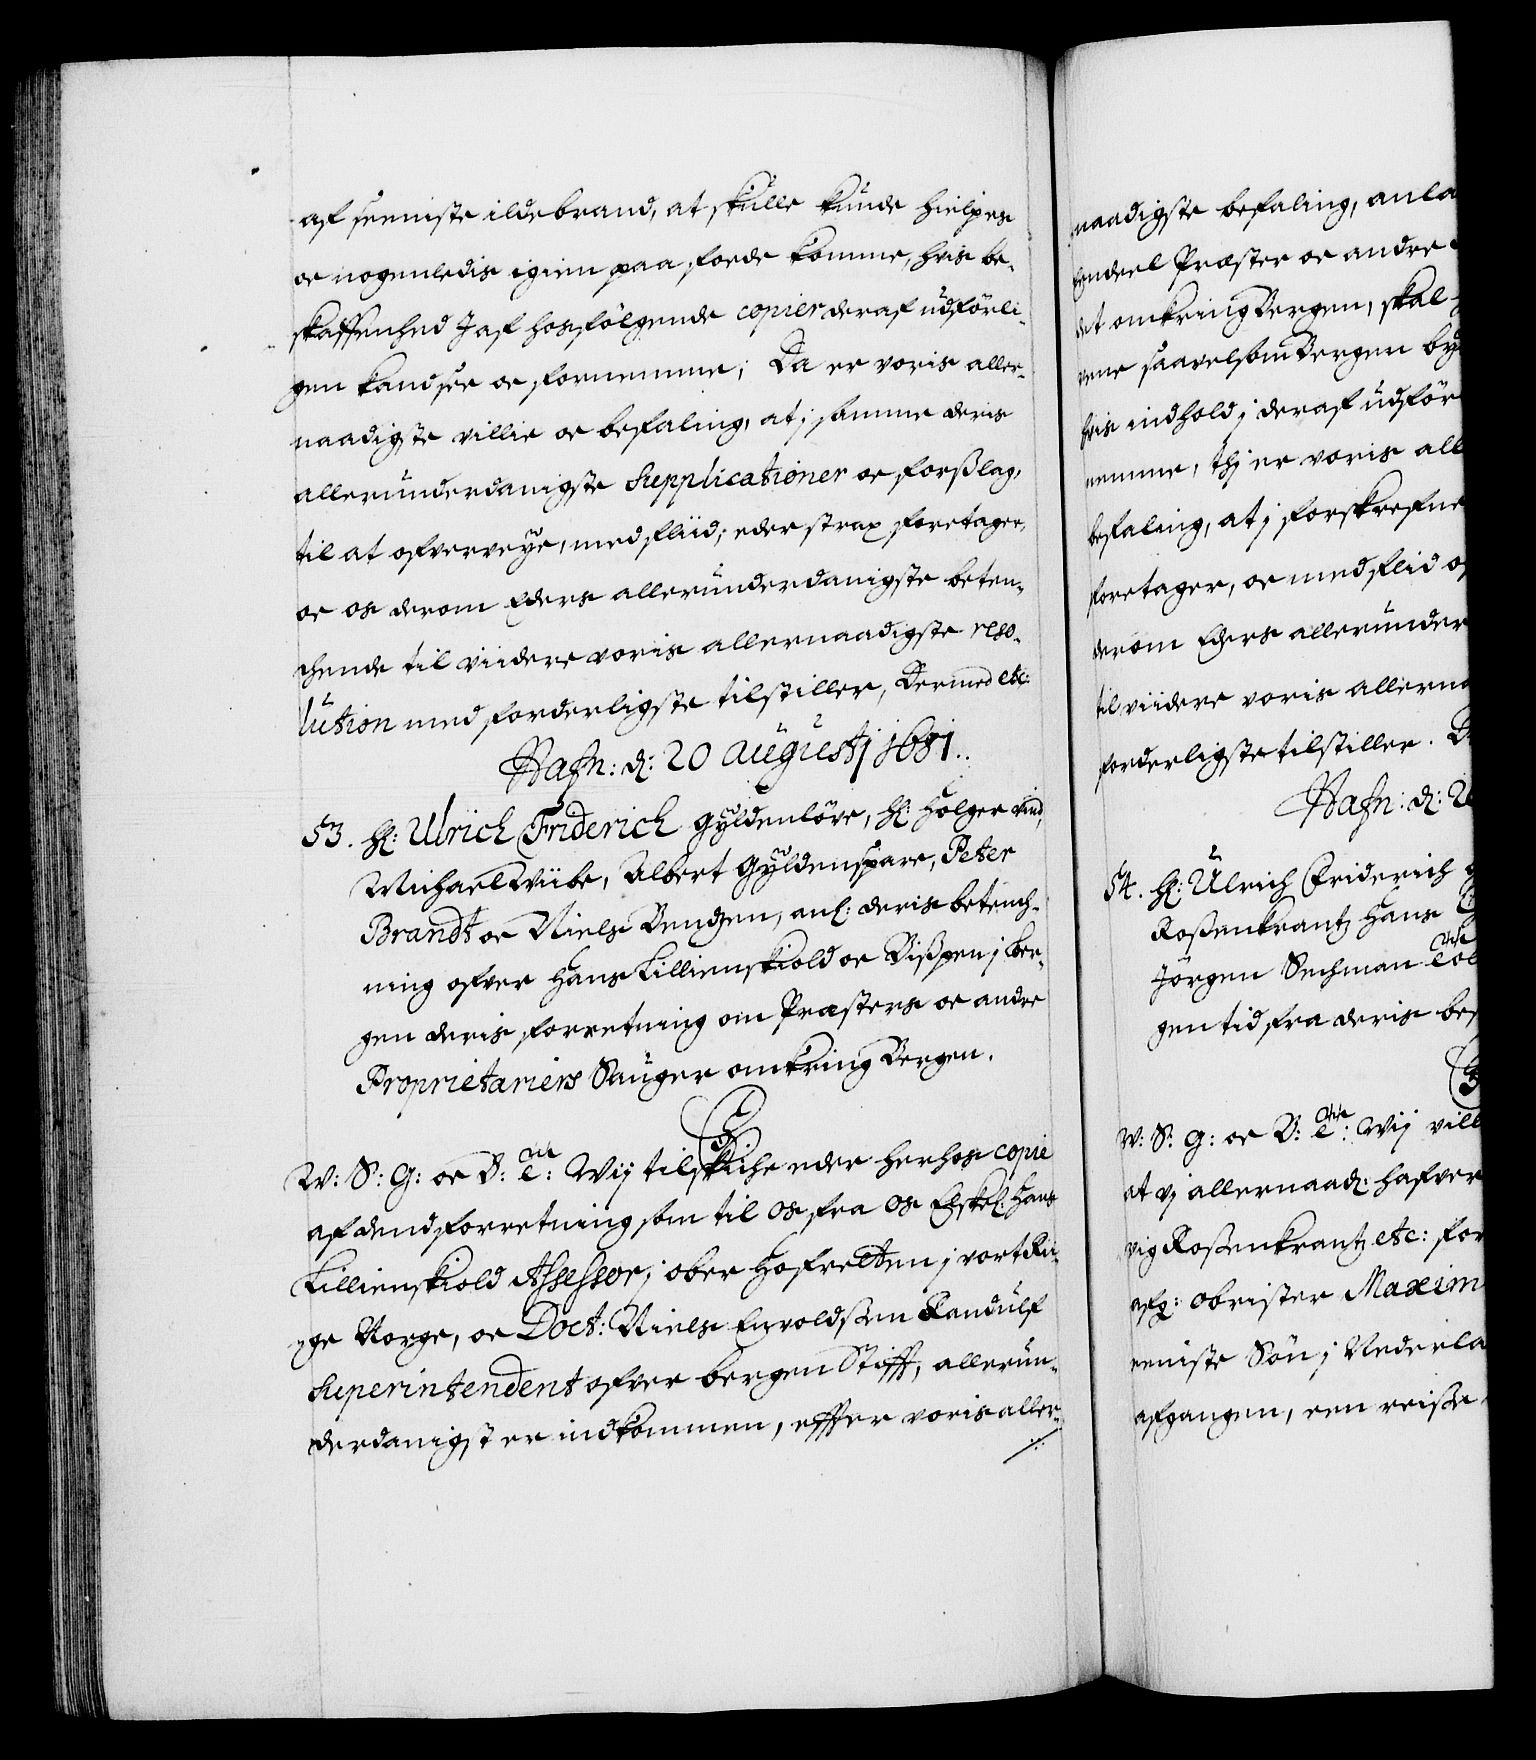 af seeniste ildebrand, at skulle kunde hielpes
oc nogenledis igien paa foede komme, hvis be-
skaffenhed I af hosfølgende copier deraf udførli-
gen kand see oc fornemme, Da er voris aller-
naadigste villie oc befaling, at j samme deris
allerunderdanigste Supplicationer oc forslag,
til at ofverveye, med fliid, eder strax foretager,
oc os derom Eders allerunderdanigste beten-
chende til viidere voris allernaadigste reso-
lution med forderligste tilstiller, Dermed etc:
Hafn: d: 20 Augustj 1681.
53. Hr: Ulrich Friderich Gyldenløve, Hr: Holger Vind,
Michael Wiibe, Albert Gyldenspare, Peter
Brandt oc Niels Bendzen, anl: deris betench-
ning ofver Hans Lillienskiold oc Bispen j Ber-
gen deris forretning om Præsters oc andre
Proprietariers Sauger omkring Bergen.
C5
W: S: G: oc B: etc: Wij tilskiche eder herhos copie
af dend forretning som til os fra os Elskel: Hans
Lillienskiold Assessor j ober Hofretten j vort Rii-
ge Norge, oc Doct: Niels Envoldsen Randulf
Superintendent ofver bergen Stifft, allerun-
derdanigst er indkommen, effter voris aller-
naadigste befaling, anla
Eendeel Præster oc andre
det omkring Bergen, skal
vene saavelsom Bergen by
hvis indhold j deraf udfør
nemme, thj er voris all
befaling, at j forskrefne
foretager, oc med fliid of
derom Eders allerunder
til viidere voris allerna
forderligste tilstiller. D
Hafn: d: 2
54. Hr: Ulrich Friderich
Rosenkrantz Hans
Jørgen Sechman
gen tid fra deris bes
W: S: G: oc B: etc: Wij vill
at vj allernaad: hafver
vig Rosenkrantz etc: for
afg: obrister Maxim
eeniste Søn j Nederla
afgangen, een reise